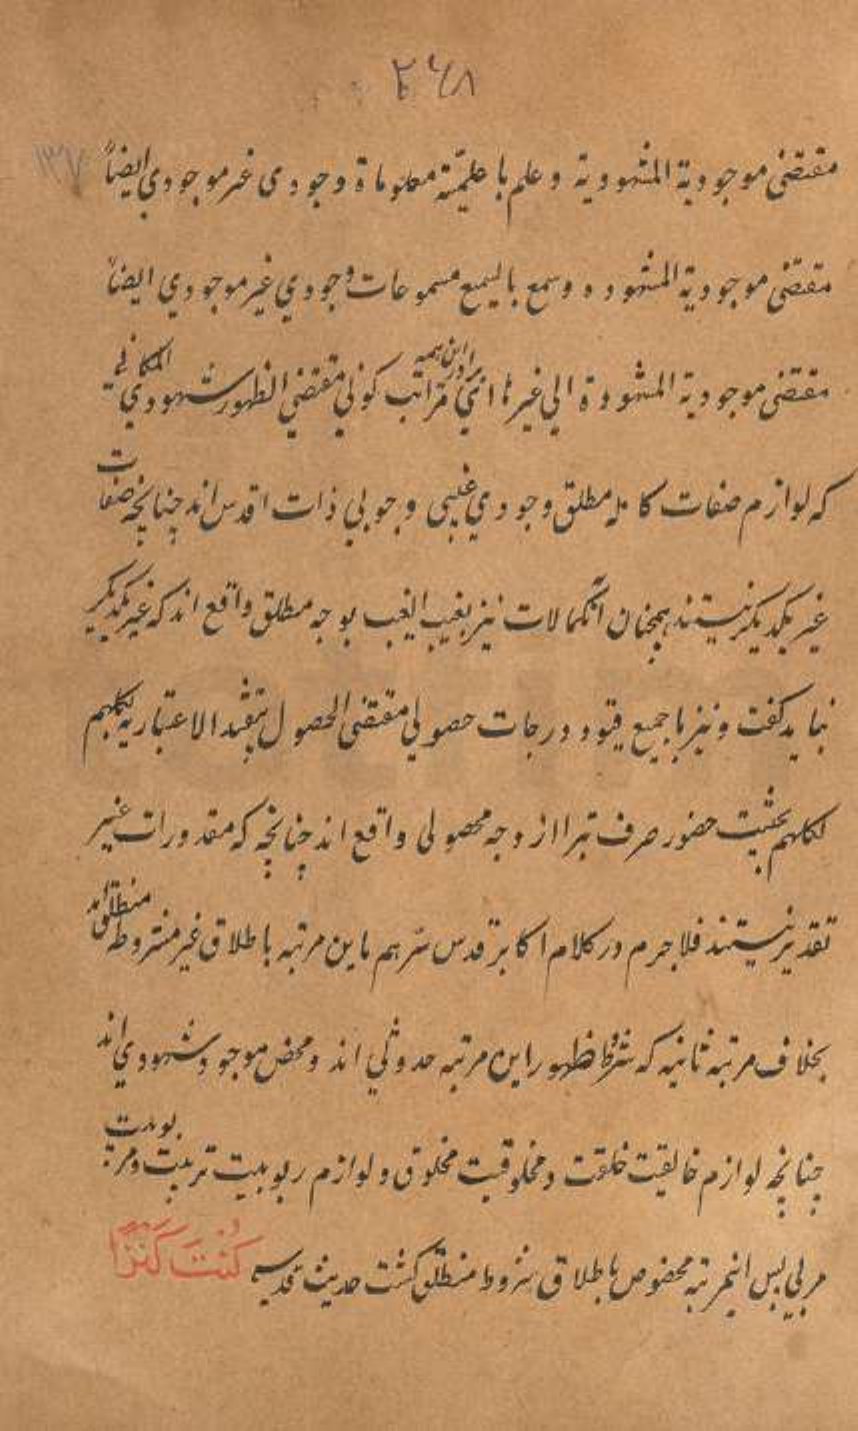 ٢٦٨
١٣٧
مقتضی موجودیة المشهودیة و علم با علمیّته معلوماة وجودی غیر موجودی ایضاً
مقتضی موجودیة المشهوده و سمع بالسمع مسموعات وجودی غیر موجودی ایضاً
مقتضی موجودیة المشهودة الی غیرها ای مراتب کونی مقتضی الظهور شهودی امکانی
که لوازم صفات کامله مطلق وجودی غیبی وجوبی ذات اقدس اند چنانچه صفات
غیر یکدیکر نیستند همچنان آنکمالات نیز بغیب الغیب بوجه مطلق واقع اند که غیر یکدیکر
نباید کفت و نیز با جمیع قیود و درجات حصولی مقتضی الحصول بتقید الاعتباریه کلهم
لکلهم بحثیت حضور صرف تبرا از وجه محصولی واقع اند چنانچه که مقدورات غیر
تقدیر نیستند فلا جرم در کلام اکابر قدس سرهم باین مرتبه باطلاق غیر مشروط منطلق اند
بخلاف مرتبه ثانیه که شرط ظهور این مرتبه حدوثی اند و محض موجود شهودی اند
چنانچه لوازم خالقیت خلقت و مخلوقیت مخلوق و لوازم ربوبیت تربیت و مربوبیت
مربی پس اینمرتبه مخصوص باطلاق شروط منطلق کشت حدیث قدسیه كُنْتُ كَنْزاً